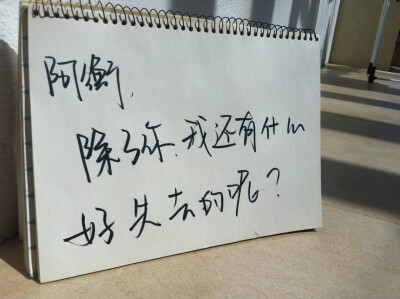 阿衡,
除了你、我还有什么
好失去的呢?